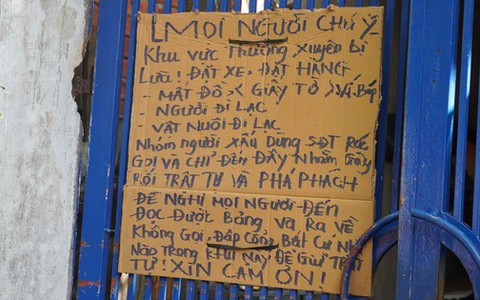 MỌI NGƯỜI CHÚ Ý
Khu vực Thường xuyên bị
Lừa! ĐẶT XE, ĐẶT HÀNG
- MẤT ĐỒ GIẤY TỜ Ví, Bóp
- NGƯỜI ĐI LẠC
VẬT NUÔI ĐI LẠC
Nhóm người XẤU DÙNG SĐT Rác
GỌI VÀ CHỈ ĐẾN ĐÂY Nhằm Gây
RỐI TRẬT TỰ VÀ PHÁ PHÁCH
ĐỀ NGHỊ MỌI NGƯỜI ĐẾN
ĐỌC ĐƯỢC BẢNG Và Ra Về
Không Gọi, Đập Cổng Bất Cứ
Nào Trong KHU NÀY ĐỂ GIỮ TRẬT
TỰ! XIN CẢM ƠN!